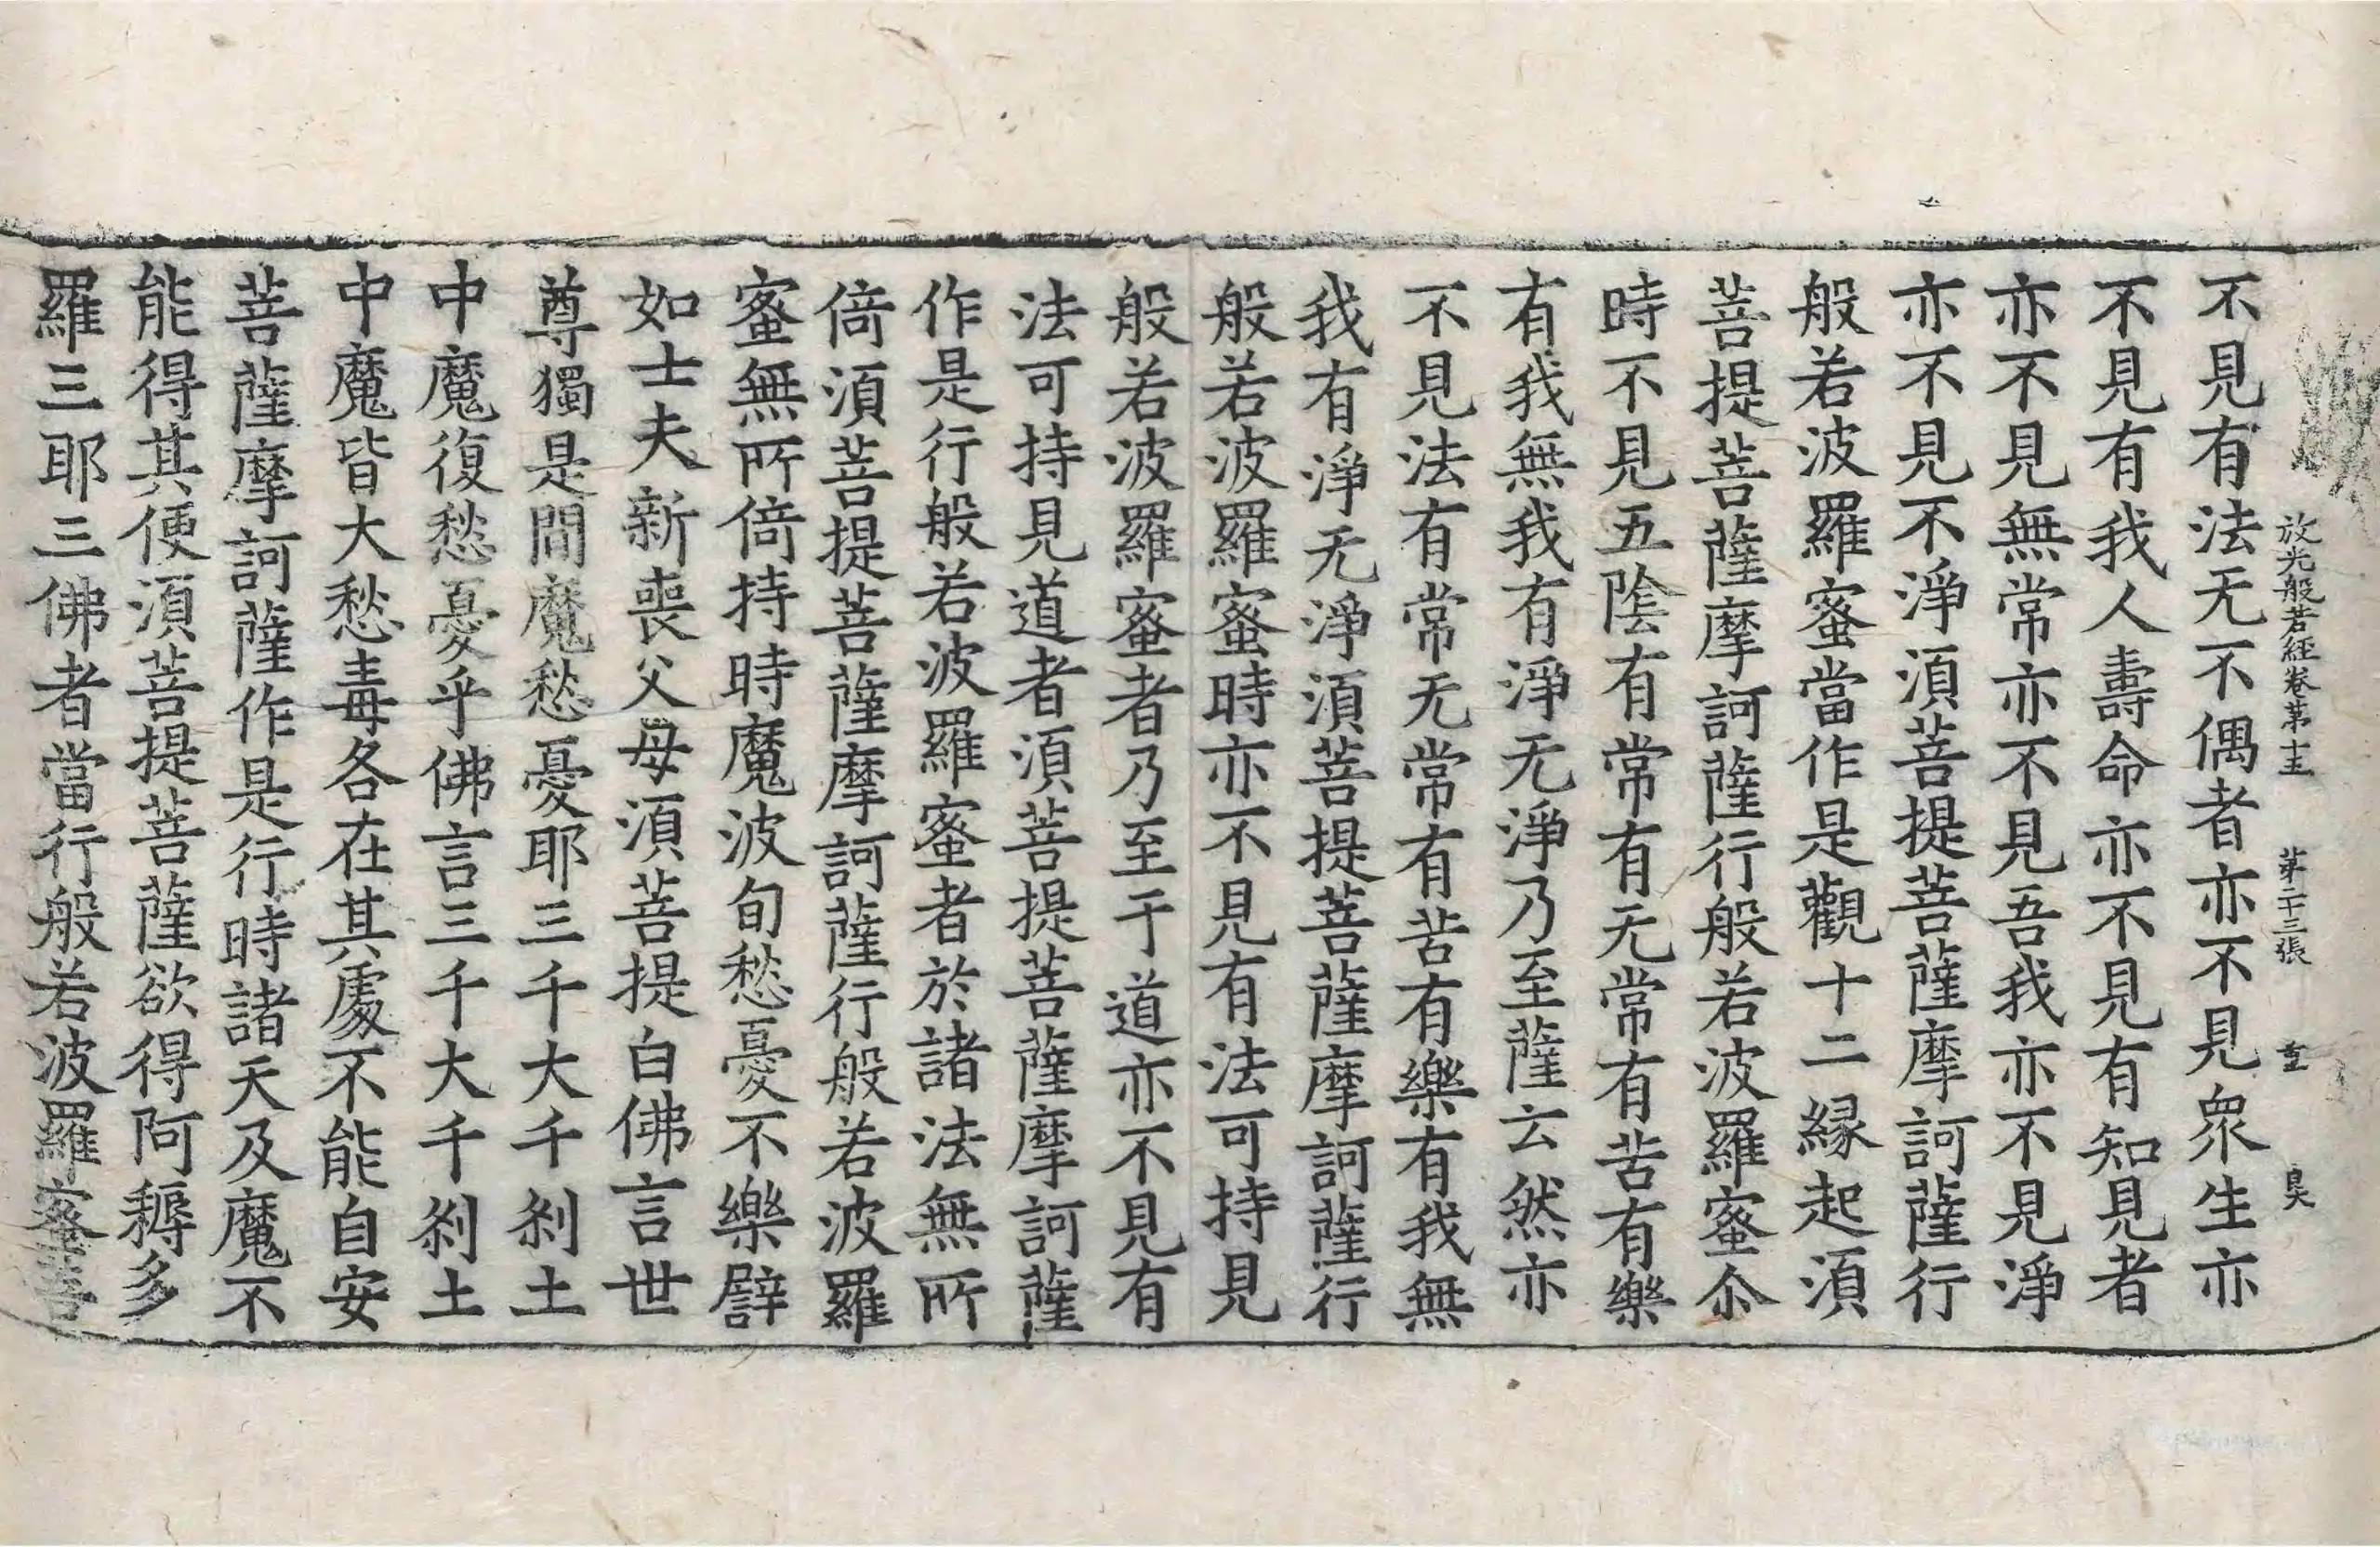 放光般若經卷第十五 第二十三張 重 昊
不見有法无不偶者亦不見衆生亦
不見有我人壽命亦不見有知見者
亦不見無常亦不見吾我亦不見淨
亦不見不淨湏菩提菩薩摩訶薩行
般若波羅蜜當作是觀十二緣起湏
菩提菩薩摩訶薩行般若波羅蜜尒
時不見五陰有常有无常有苦有樂
有我無我有淨无淨乃至薩云然亦
不見法有常无常有苦有樂有我無
我有淨无淨湏菩提菩薩摩訶薩行
般若波羅蜜時亦不見有法可持見
般若波羅蜜者乃至于道亦不見有
法可持見道者湏菩提菩薩摩訶薩
作是行般若波羅蜜者於諸法無所
倚湏菩提菩薩摩訶薩行般若波羅
蜜無所倚持時魔波旬愁憂不樂譬
如士夫新喪父母湏菩提白佛言世
尊獨是間魔愁憂耶三千大千剎土
中魔復愁憂乎佛言三千大千剎土
中魔皆大愁毒各在其處不能自安
菩薩摩訶薩作是行時諸天及魔不
能得其便湏菩提菩薩欲得阿耨多
羅三耶三佛者當行般若波羅蜜菩